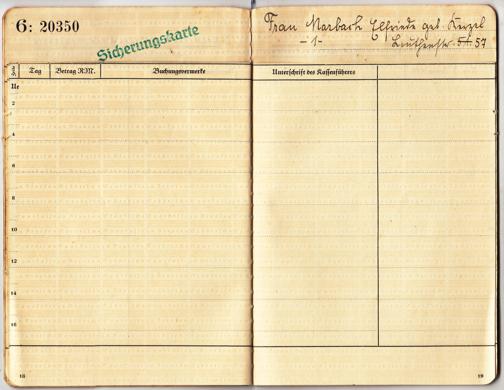 6: 20350
Sicherungskarte
Frau Marbach Elfriede geb.
-1-
57
Tag
Betrag RM.
Buchungsvermerke
Unterschrift des Kassenführers
2
4
6
8
10
12
14
16
18
19